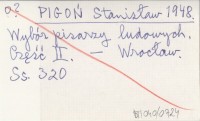 PIGOŃ Stanisław 1948.
Wybór pisarzy ludowych.
Część II. — Wrocław.
Ss 320